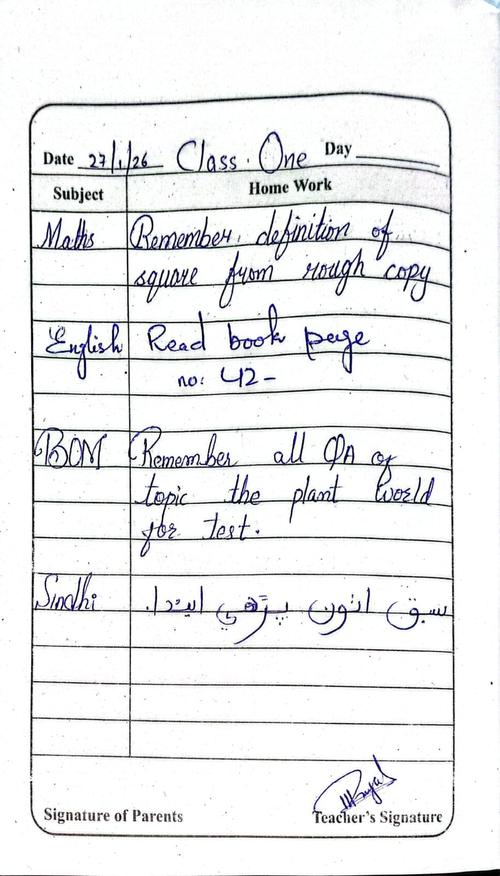 Date 27/1/26 Class. One Day
Subject Home Work
Maths Remember. definition of
square from rough copy
English Read book page
no: 42-
Remember all QA of
topic the plant world
for test.
Sindhi سبق اٺون پڙهي ايندا.
Signature of Parents Teacher's Signature